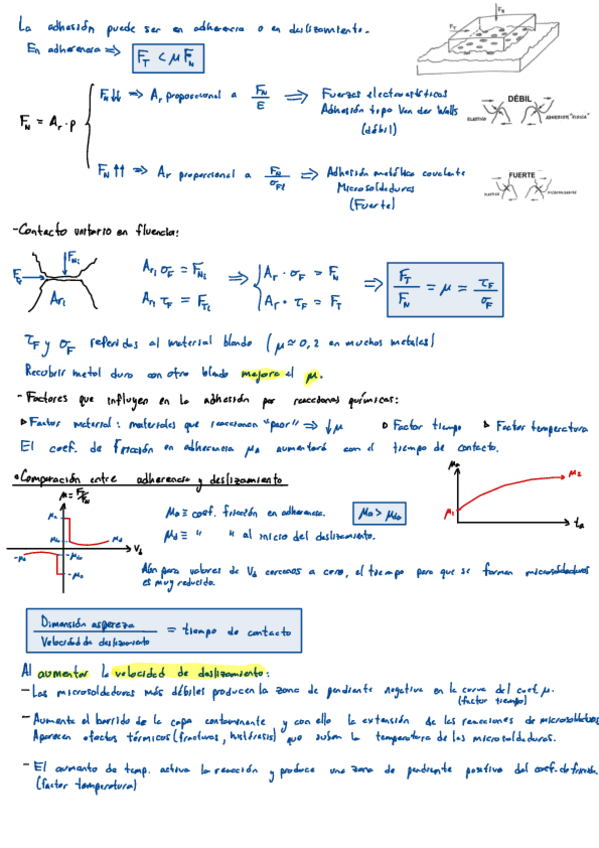 La adhesión puede ser en adherencia o en deslizamiento.
En adherencia => F_T < μ F_N
F_N = A_r · p
F_N↓↓ => A_r proporcional a F_N/E => Fuerzas electrostáticas
Adhesión tipo Van der Walls
(débil)
DÉBIL
F_N↑↑ => A_r proporcional a F_N/σ_Fl => Adhesión metálica covalente
Microsoldaduras
(Fuerte)
FUERTE
-Contacto unitario en fluencia:
F_Ni
A_ri
A_ri σ_F = F_Ni
A_ri τ_F = F_Ti
=> A_r · σ_F = F_N
A_r · τ_F = F_T
=> F_T/F_N = μ = τ_F/σ_F
τ_F y σ_F referidos al material blando (μ ≈ 0,2 en muchos metales)
Recubrir metal duro con otro blando mejora el μ.
- Factores que influyen en la adhesión por reacciones químicas:
▷ Factor material: materiales que reaccionen "peor" => ↓μ ▷ Factor tiempo ▷ Factor temperatura
El coef. de fricción en adherencia μ_a aumentará con el tiempo de contacto.
•Comparación entre adherencia y deslizamiento
μ = F_T/F_N
V_d
μ_a ≡ coef. fricción en adherencia. μ_a > μ_do
μ_d ≡ " " al inicio del deslizamiento.
μ_a
μ_1
μ_2
t_a
Aún para valores de V_d cercanos a cero, el tiempo para que se formen microsoldaduras
es muy reducido.
Dimensión aspereza / Velocidad de deslizamiento = tiempo de contacto
Al aumentar la velocidad de deslizamiento:
- Las microsoldaduras más débiles producen la zona de pendiente negativa en la curva del coef μ.
(factor tiempo)
- Aumenta el barrido de la capa contaminante y con ello la extensión de las reacciones de microsoldaduras
Aparecen efectos térmicos (fracturas, histéresis) que suben la temperatura de las microsoldaduras.
- El aumento de temp. activa la reacción y produce una zona de pendiente positiva del coef. de fricción.
(factor temperatura)